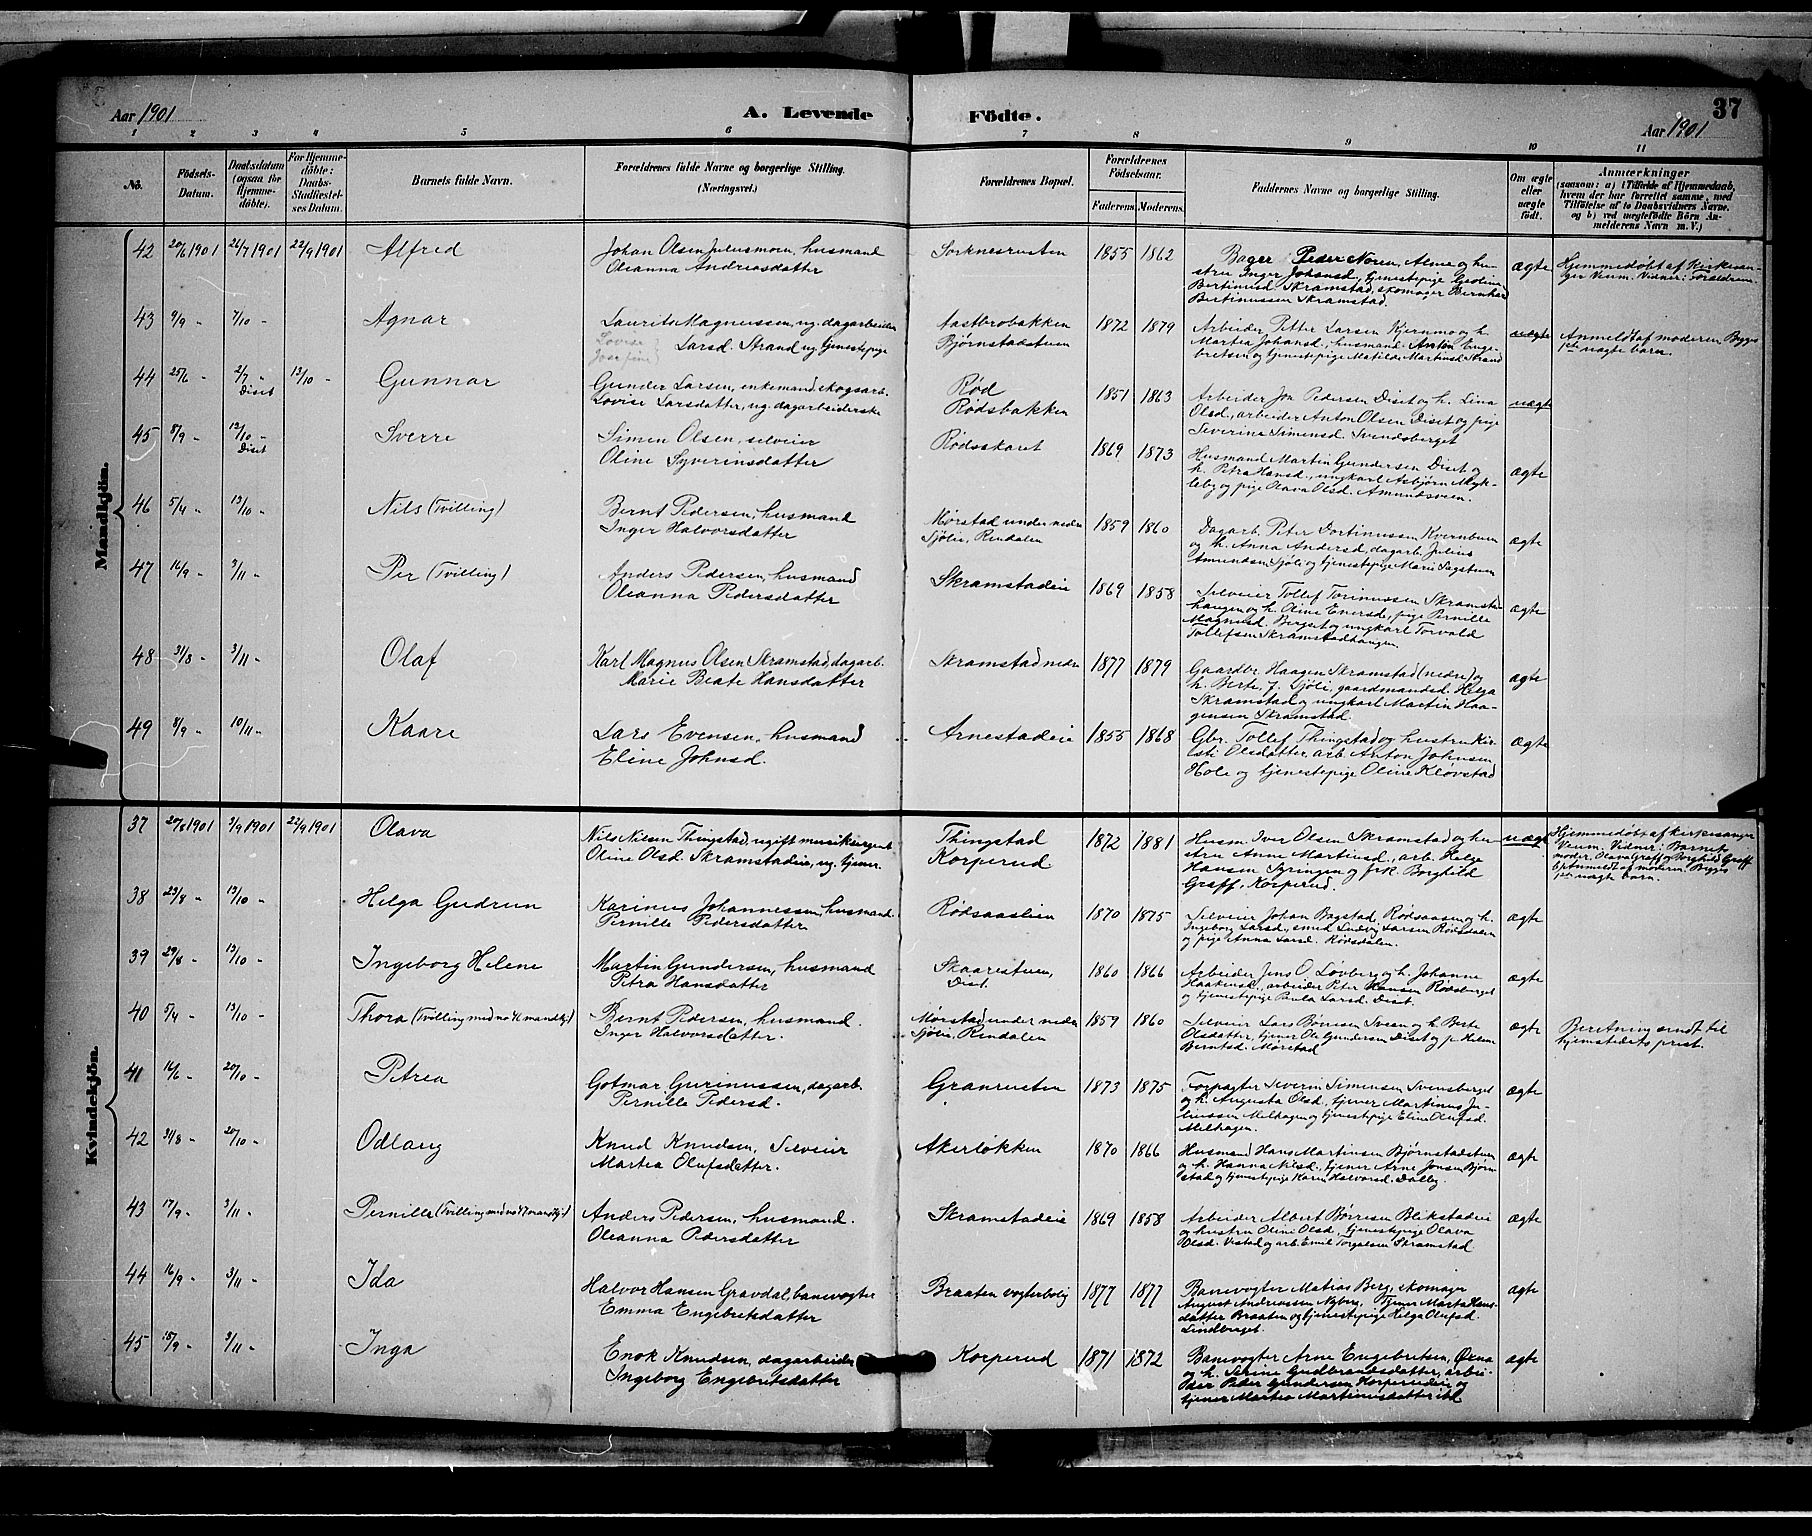 Aar 1901
A. Levende
Fødte.
37
Aar 1901
1 2 3 4 5 6 7 8 9 10 11
No.
Fødsels-Datum.
Daabsdatum (ogsaa for Hjemme-døbte).
For Hjemme-døbte: Daabs-Stadfæstel-ses Datum.
Barnets fulde Navn.
Forældrenes fulde Navne og borgerlige Stilling. (Næringsvei.)
Forældrenes Bopæl.
Forældrenes Fødselsaar.
Faderens. Moderens.
Faddernes Navne og borgerlige Stilling.
Om ægte eller uægte født.
Anmærkninger
(saasom: a) i Tilfælde af Hjemmedaab,
hvem der har forrettet samme, med
Tilføielse af to Daabsvidners Navne,
og b) ved uægtefødte Børn An-
melderens Navn m. V.)
Mandkjøn.
42 20/6 1901 26/7 1901 22/9 1901 Alfred
Johan Olsen Juliusmoen, husmand
Oleanna Andreasdatter
Sorknesrusten 1855 1862
Bager Peder Noren, Alme og hu-
stru Inger Johansd., tjenestepige
Bertinusd. Skramstad, skomager Bernhar
Bertinussen Skramstad
ægte
Hjemmedøbt af Kirkesan-
ger Veum. Vidner: Forældrene.
43 9/9 - 7/10 - Agnar
Laurits Magnussen, ug. dagarbeider
Lovise Josefine Larsd. Strand ug. tjenestepige
Aastbrobakken
Bjørnstadstuen
1872 1879
Arbeider Petter Larsen Kjernmo og h.
Martea Johansd., husmand Anton Enge-
bretsen og tjenestepige Matilde Martinsd. Strand
uægte
Anmeldt af moderen. Begges
1ste uægte barn.
44 25/6 - 2/7 - Diset 13/10 - Gunnar
Gunder Larsen, enkemand, skogsarb.
Lovise Larsdatter, ug. dagarbeiderske
Rød
Rødsbakken
1851 1863
Arbeider Jon Pedersen Diset og h. Lina
Olsd., arbeider Anton Olsen Diset og pige
Severine Simensd. Svendsberget
uægte
45 8/9 - 13/10 - Diset Sverre
Simen Olsen, selveier
Oline Syverinsdatter
Rødsskaret 1869 1873
Husmand Martin Gundersen Diset og
h. Petra Hansd., ungkarl Asbjørn Myk-
leby og pige Olava Olsd. Amundsveen.
ægte
46 5/4 - 13/10 - Nils (Tvilling)
Bernt Pedersen, husmand
Inger Halvorsdatter
Mørstad under nedre
Sjølie, Rendalen
1859 1860
Dagarb. Peter Kvernbuen
og h. Anna Andersd., dagarb. Julius
Amundsen Sjøli og tjenestepige Marie Sagstuen
ægte
47 16/9 - 3/11 - Per (Tvilling)
Anders Pedersen, husmand
Oleanna Pedersdatter
Skramstadeie 1869 1858
Selveier Tollef Torinussen Skramstad-
haugen og h. Oline Enersd., pige Pernille
Magnusd. Berget og ungkarl Torvald
Tollefsen Skramstadhaugen
ægte
48 31/8 - 3/11 - Olaf
Karl Magnus Olsen Skramstad, dagarb.
Marie Beate Hansdatter
Skramstad nedre 1877 1879
Gaardbr. Haagen Skramstad (nedre) og
h. Berte f. Sjøli, gaardmandsd. Helga
Skramstad og ungkarl Martin Haa-
gensen Skramstad.
ægte
49 8/9 - 10/11 - Kaare
Lars Evensen, husmand
Eline Johnsd.
Arnestadeie 1855 1868
Gbr. Tollef Thingstad og hustru Kir-
sti Olsdatter, arb. Anton Johnsen
Hole og tjenestepige Oline Kløvstad
ægte
Kvindekjøn.
37 20/8 1901 3/9 1901 22/9 1901 Olava
Nils Nilsen Thingstad, ugift musiksergent
Oline Olsd. Skramstadeie, ug. tjener
Thingstad
Korperud.
1872 1881
Husm. Iver Olsen Skramstad og hu-
stru Anne Martinsd., arb. Helge
Hansen Syringen og frk. Borghild
Graff, Korperud.
uægte
Hjemmedøbt af kirkesanger
Veum. Vidner: Barnets
moder, Olava Graff og Borghild Graff
b) Anmeldt af moderen. Begges
1ste uægte barn.
38 23/8 - 13/10 - Helga Gudrun
Karinus Johannessen, husmand
Pernille Pedersdatter
Rødsaaslien 1870 1875
Selveier Johan Bagstad, Rødsaasen og h.
Ingeborg Larsd., smed Ludvig Larsen Røvsdalen
og pige Anna Larsd. Røvsdalen.
ægte
39 29/8 - 13/10 - Ingeborg Helene
Martin Gundersen, husmand
Petra Hansdatter
Skaarestuen,
Diset.
1860 1866
Arbeider Jens O. Løvberg og h. Johanne
Haakensd., arbeider Peter Hansen Rødsberget
og tjenestepige Paula Larsd. Diset.
ægte
40 5/4 - 13/10 - Thora (Tvilling med no 46 mandkj:)
Bernt Pedersen, husmand.
Inger Halvorsdatter.
Mørstad under nedre
Sjølie, Rendalen
1859 1860
Selveier Lars Bønsen Sveen og h. Berte
Olsdatter, tjener Ole Gundersen Diset og p. Helene
Berntsd. Mørstad
ægte
Beretning sendt til
hjemstedets prest.
41 16/6 - 20/10 - Petrea
Gotmar Gurinussen, dagarb.
Pernille Pedersd.
Granrusten 1873 1875
Forpagter Severin Simensen Svensberget
og h. Augusta Olsd., tjener Martinus Ju-
liussen Melhagen og tjenestepige Eline Olufsd.
Melhagen.
ægte
42 31/8 - 20/10 - Odlaug
Knud Knudsen, Selveier
Martea Olufsdatter.
Akerløkken 1870 1866
Husmand Hans Martinsen Bjørnstadstuen
og h. Hanna Nilsd., tjener Arne Jonsen Bjørn-
stad og tjenestepige Karen Halvorsd. Dalby.
ægte
43 17/9 - 3/11 - Pernille (Tvilling med no 47 mandkj:)
Anders Pedersen, husmand.
Oleanna Pedersdatter
Skramstadeie 1869 1858
Arbeider Albert Børresen Blikstadeie
og hustru Oline Olsd., tjenestepige Olava
Olsd. Vestad og arb. Emil Torgalsen Skramstad
ægte
44 16/9 - 3/11 - Ida
Halvor Hansen Gravdal, banevogter
Emma Engebretsdatter
Braaten vogterbolig 1877 1877
Banevogter Matias Berg, skomager
August Andreassen Nyberg, Tjener Marta Hans-
datter Braaten og tjenestepige Helga Olufsd.
Lindberget.
ægte
45 15/9 - 3/11 - Inga
Enok Knudsen, dagarbeider
Ingeborg Engebretsdatter
Korperud 1871 1872
Banevogter Arne Engebretsen, Øxna
og h. Serine Gudbrandsdatter, arbei-
der Peder Gundersen Korperudeie og
tjener Martea Martinusdatter ibd.
ægte